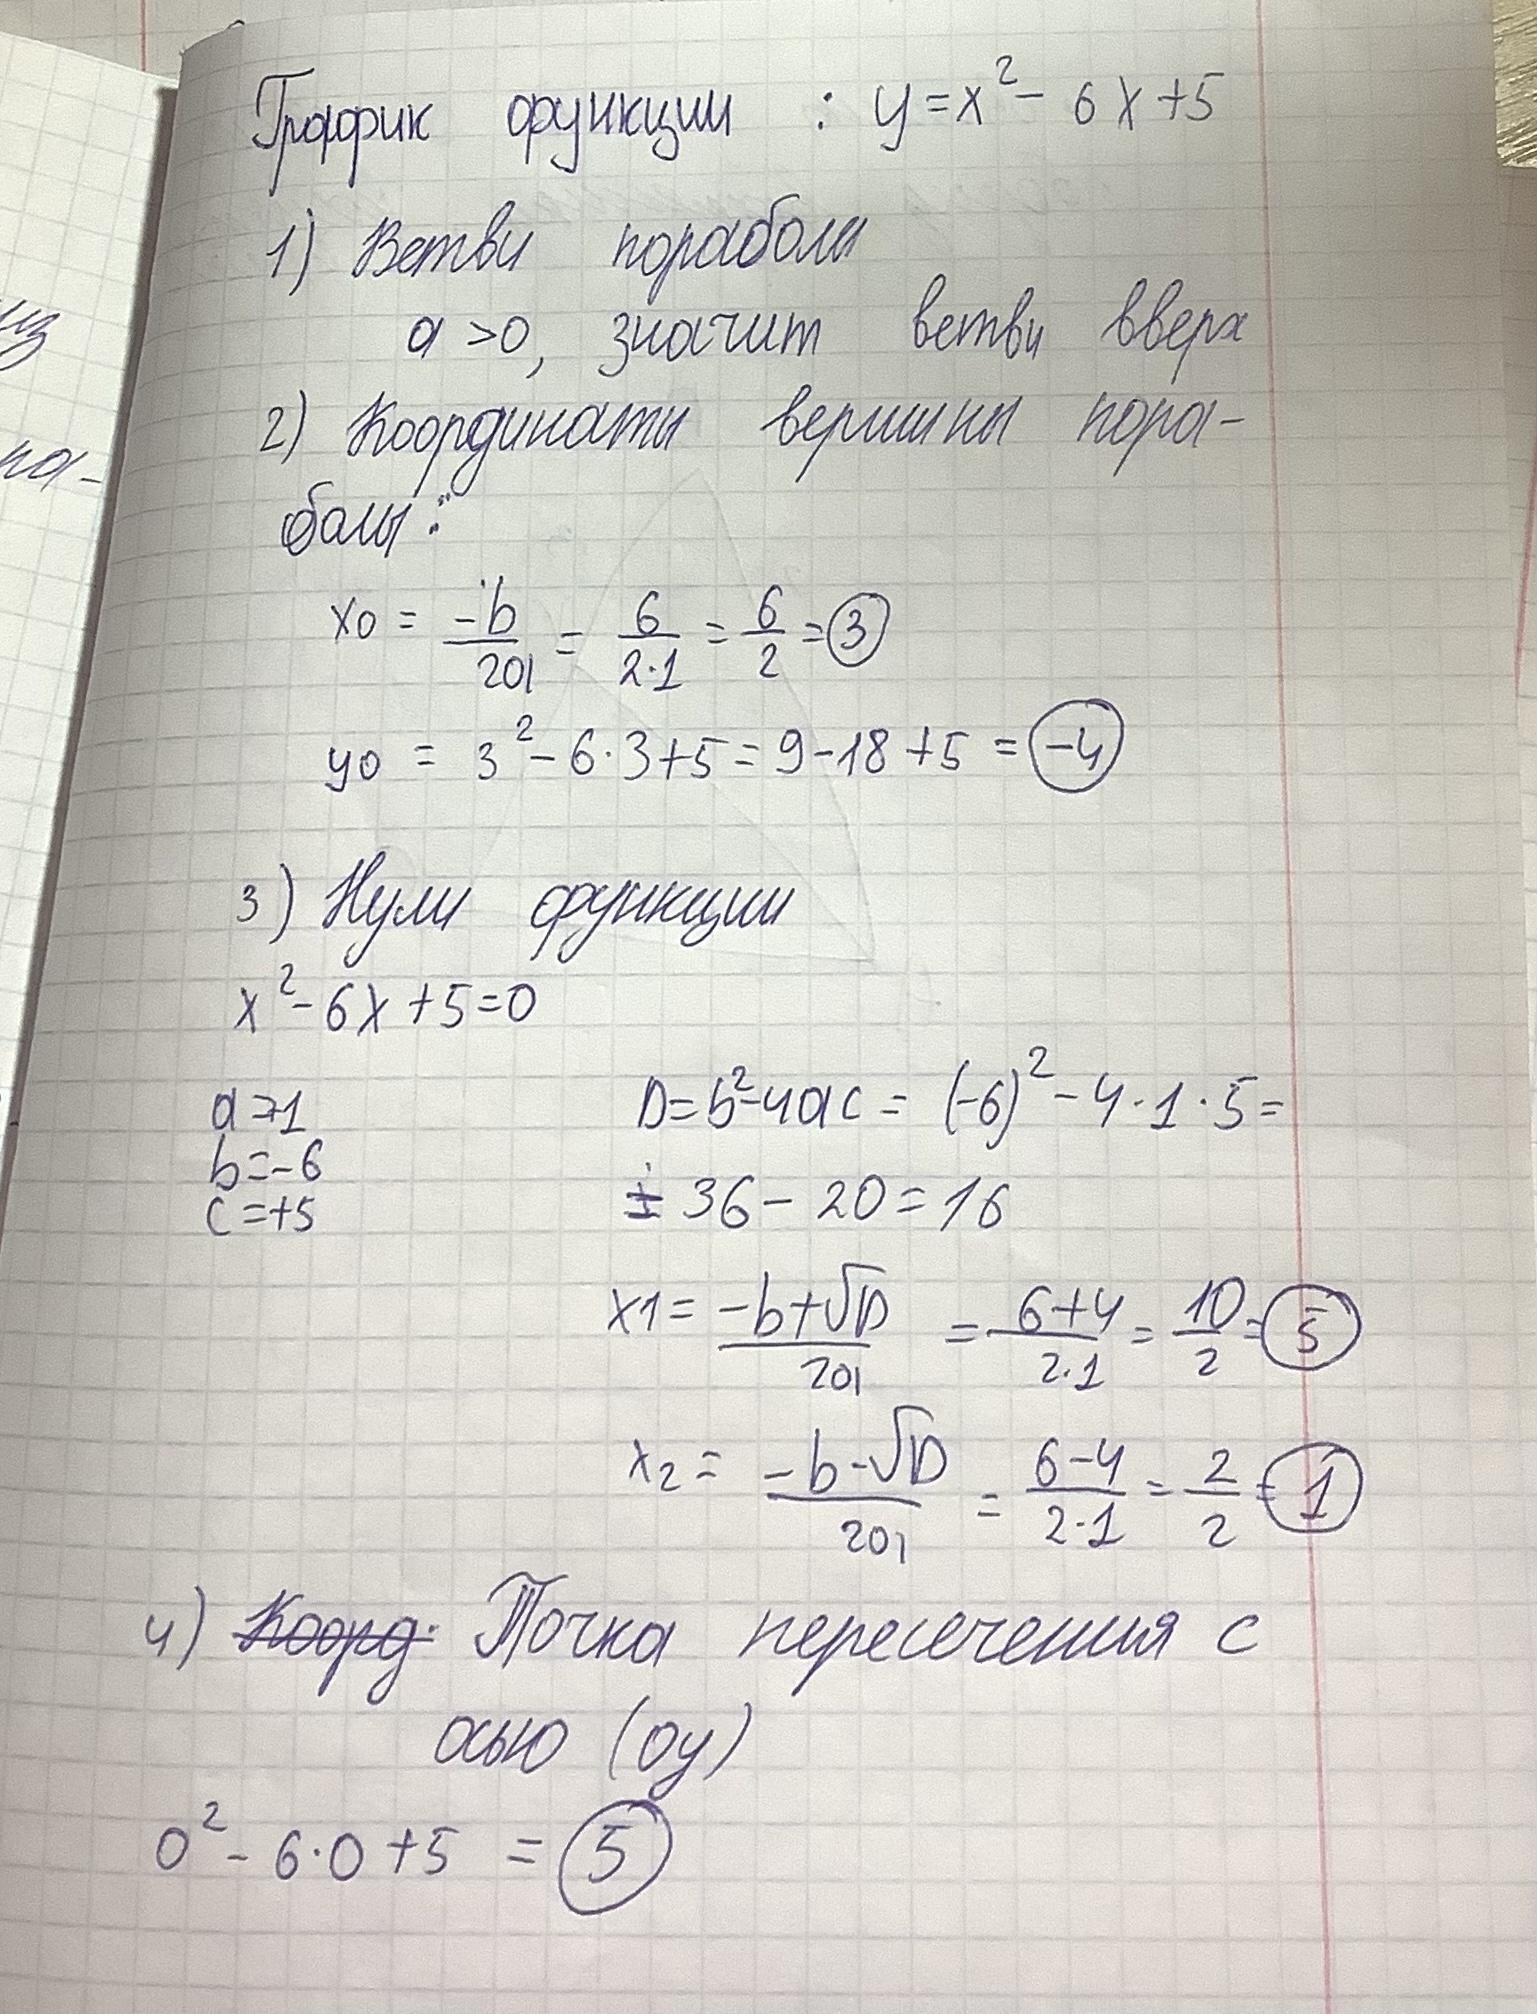 из
па-
График функции : y=x²-6x+5
1) Ветви порабол
a>0, значит ветви вверх
2) Координаты вершины пора-
болы:
x0 = -b/2a = 6/2·1 = 6/2 = 3
y0 = 3²-6·3+5=9-18+5 = -4
3) Нули функции
x²-6x+5=0
a=1
b=-6
c=+5
D=b²-4ac = (-6)²-4·1·5=
= 36-20=16
x1= -b+√D/2a = 6+4/2·1 = 10/2 = 5
x2= -b-√D/2a = 6-4/2·1 = 2/2 = 1
4) Коорд. Точка пересечения с
осью (оу)
0²-6·0+5 = 5